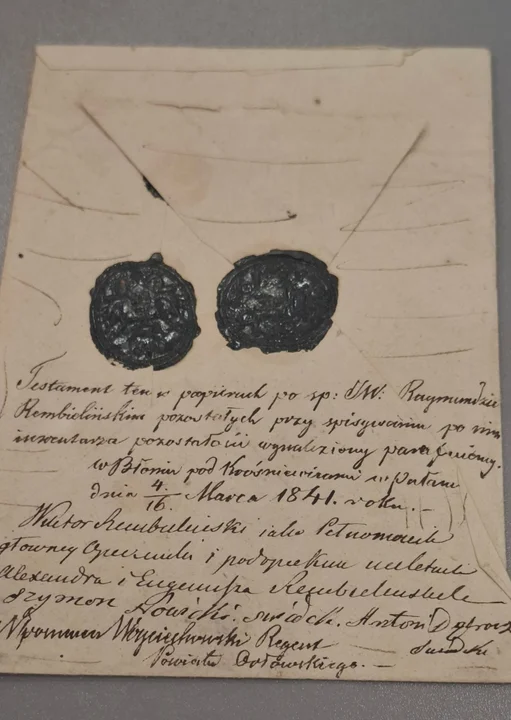 Testament ten w papierach po sp: JW. Raymundzie
Rembielińskim pozostałych przy spisywaniu po nim
inwentarza pozostałości wynaleziony parafowany.
w Błoniu pod Krośniewicami w Pałacu
dnia 4/16 Marca 1841. roku.-
Wiktor Rembieliński jako Pełnomocnik
głowney Opiekunki i podopiekun nieletnich
Alexandra i Eugeniusza Rembielińskich
Szymon świadek. Antoni
Wojciechowski Regent Świadek
Powiatu Orłowskiego.-